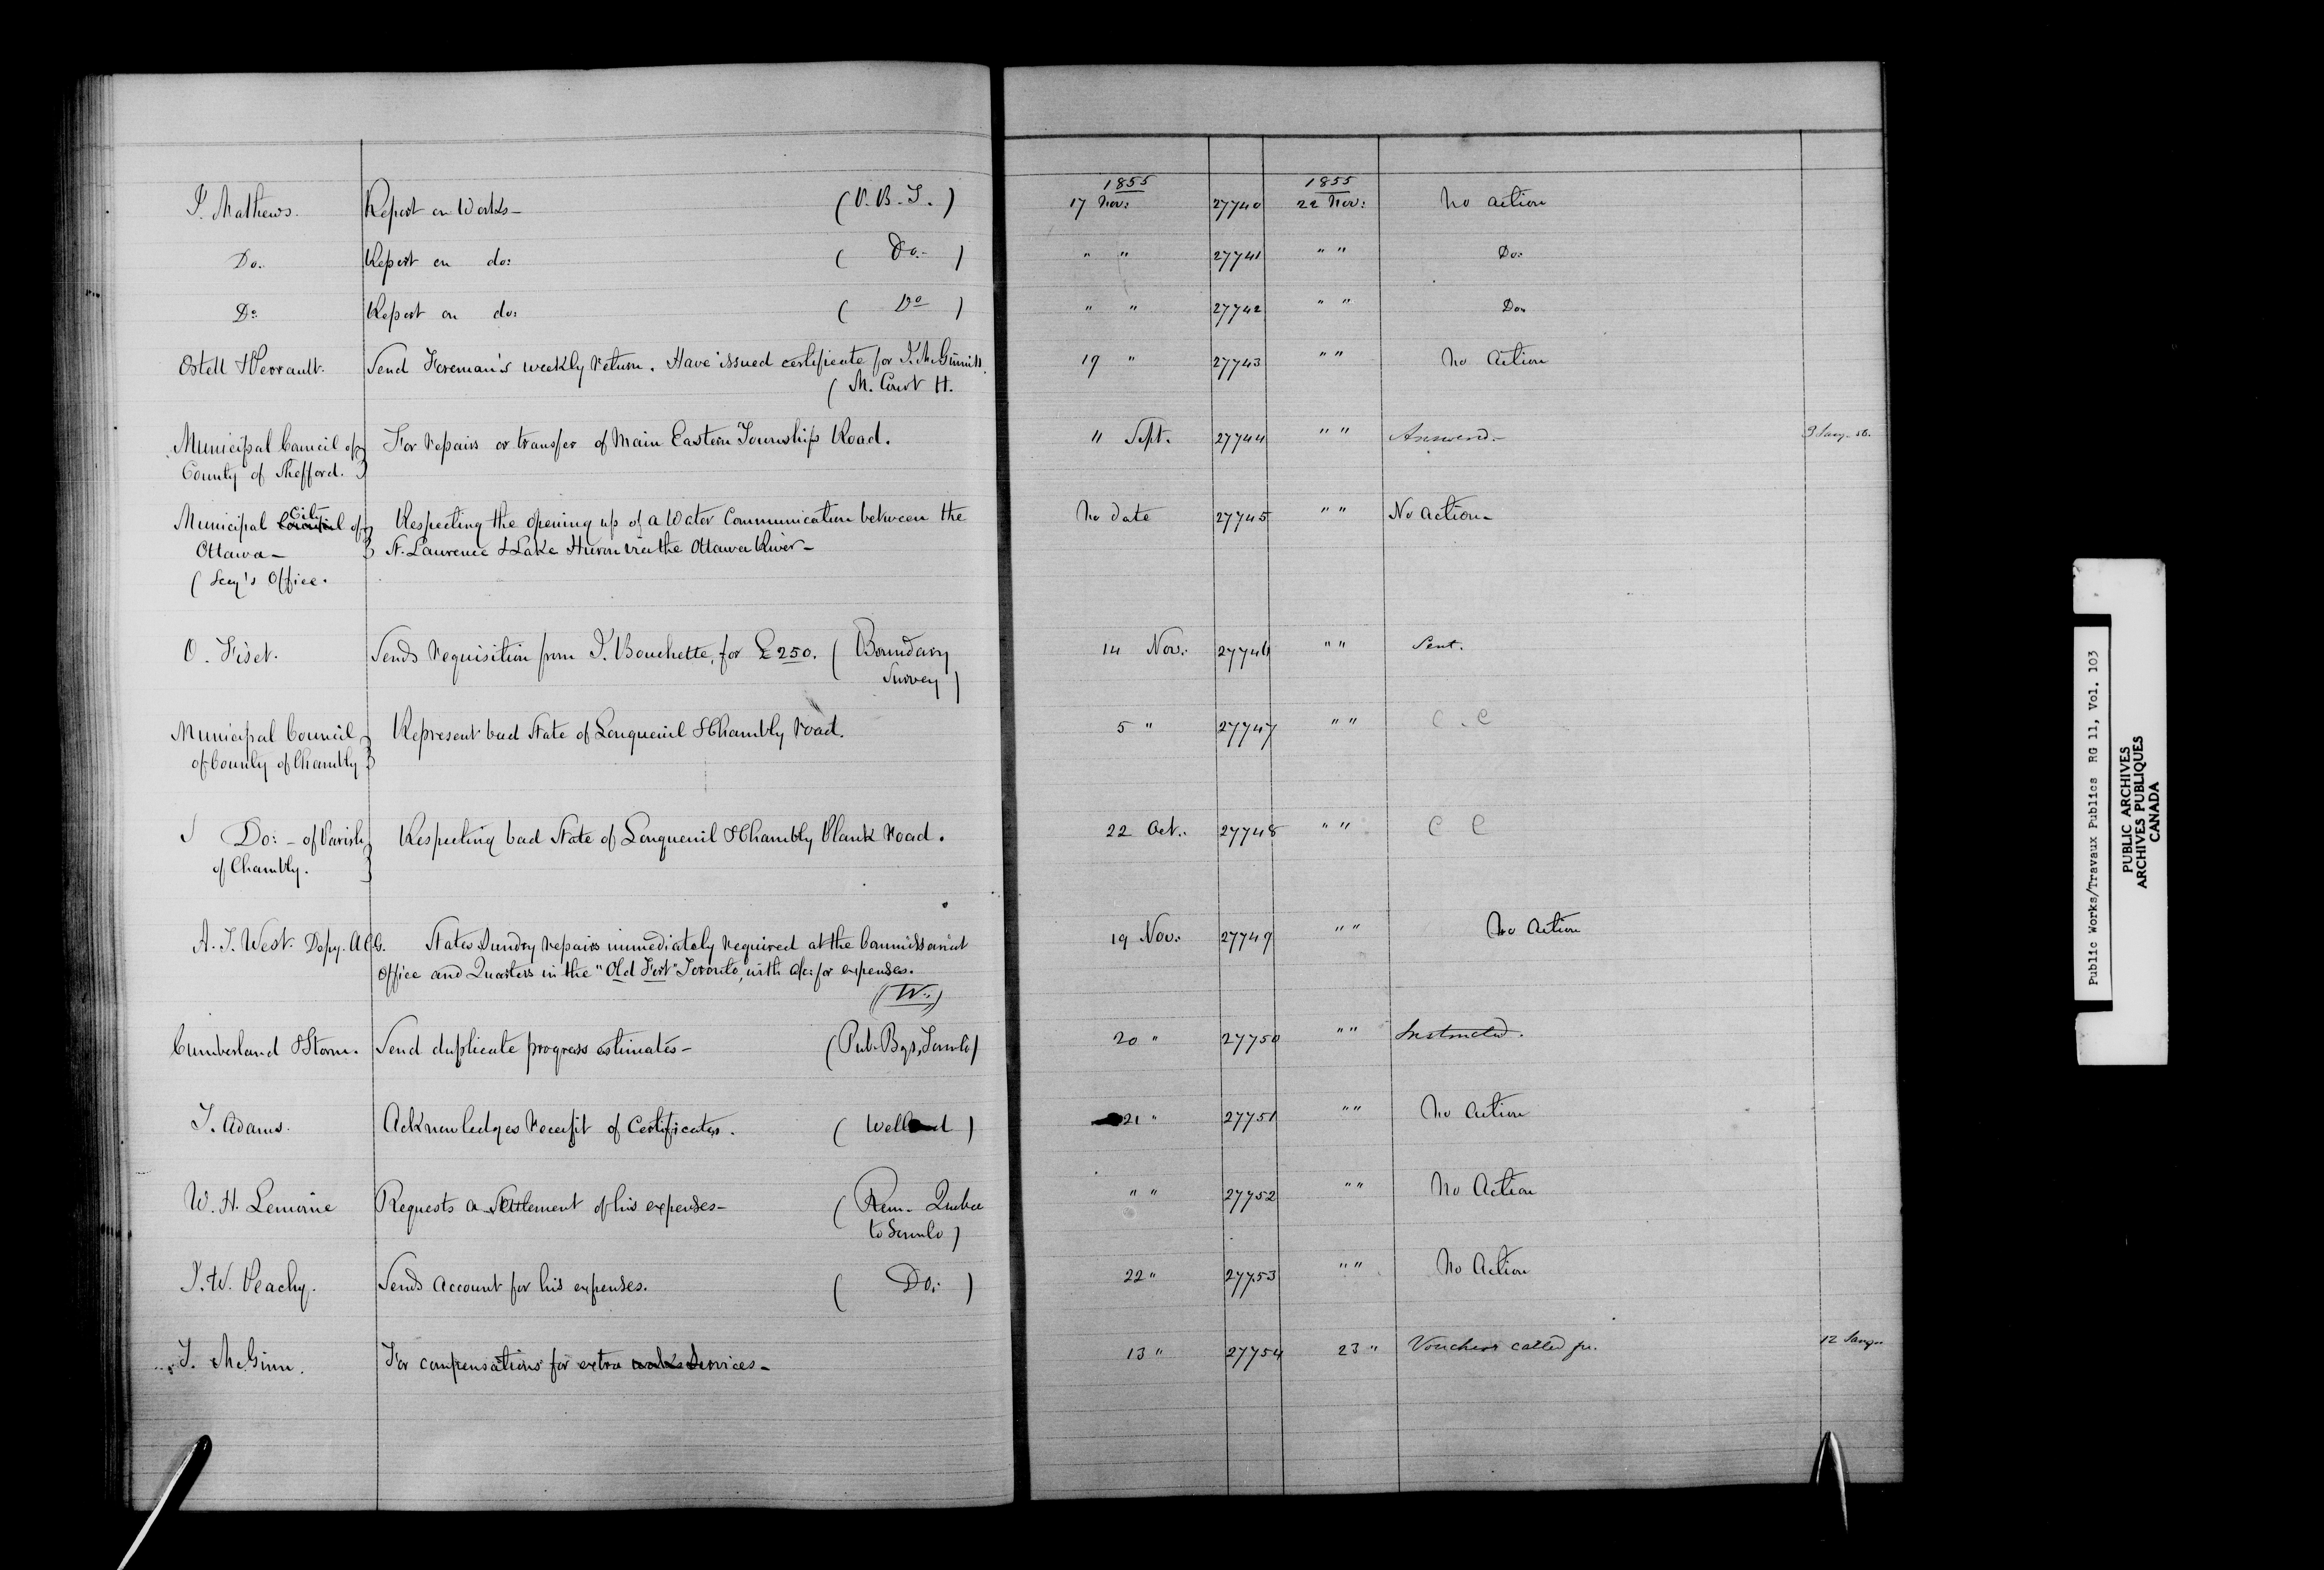 1855 1855
P. Mathews. Report on Works- (P.B.T.) 17 Nov: 27740 22 Nov: No action
Do. Report on do: ( Do.- ) " " 27741 " " Do:
Do: Report on do: ( Do ) " " 27742 " " Do:
Ostell & Perrault. Send Foreman's weekly return. Have issued certificate for 19 " 27743 " " No Action
( M. Court H.
Municipal Council of For repairs or transfer of Main Eastern Townships Road. 11 Sept. 27744 " " Answered.- 9 Jany. 56.
County of Shefford.
City
Municipal Council of Respecting the opening up of a Water Communication between the No date 27745 " " No action-
Ottawa- St. Laurence & Lake Huron via the Ottawa River-
( Secy's Office.
O. Fiset. Sends requisition from J. Bouchette, for £250. ( Boundary 14 Nov: 27746 " " Sent.
Survey )
Municipal Council Represent bad State of Longueuil & Chambly road. 5 " 27747 " " C.C
of County of Chambly
Do:- of Parish Respecting bad State of Longueuil & Chambly Plank road. 22 Oct.: 27748 " " C C
of Chambly.
A. T. West. Depy. A C G. States Sundry repairs immediately required at the Commissariat 19 Nov: 27749 " " No Action
Office and Quarters in the "Old Fort" Toronto, with a/c: for expenses.
(W.)
Cumberland & Storm. Send duplicate progress estimates- (Pub. Bgs, Toronto) 20 " 27750 " " Instructed.
S. Adams. Acknowledges receipt of Certificates. ( Welland ) 21 " 27751 " " No Action
W. H. Lemoine Requests a Settlement of his expenses- ( Rem. Quebec " " 27752 " " No Action
to Toronto )
J. W. Peachy. Sends Account for his expenses. ( Do: ) 22 " 27753 " " No Action
J. McGinn. For compensations for extra works Services- 13 " 27754 23 " Vouchers called for. 12 Jany
Public Works/Travaux Publics RG 11, Vol. 103
PUBLIC ARCHIVES
ARCHIVES PUBLIQUES
CANADA